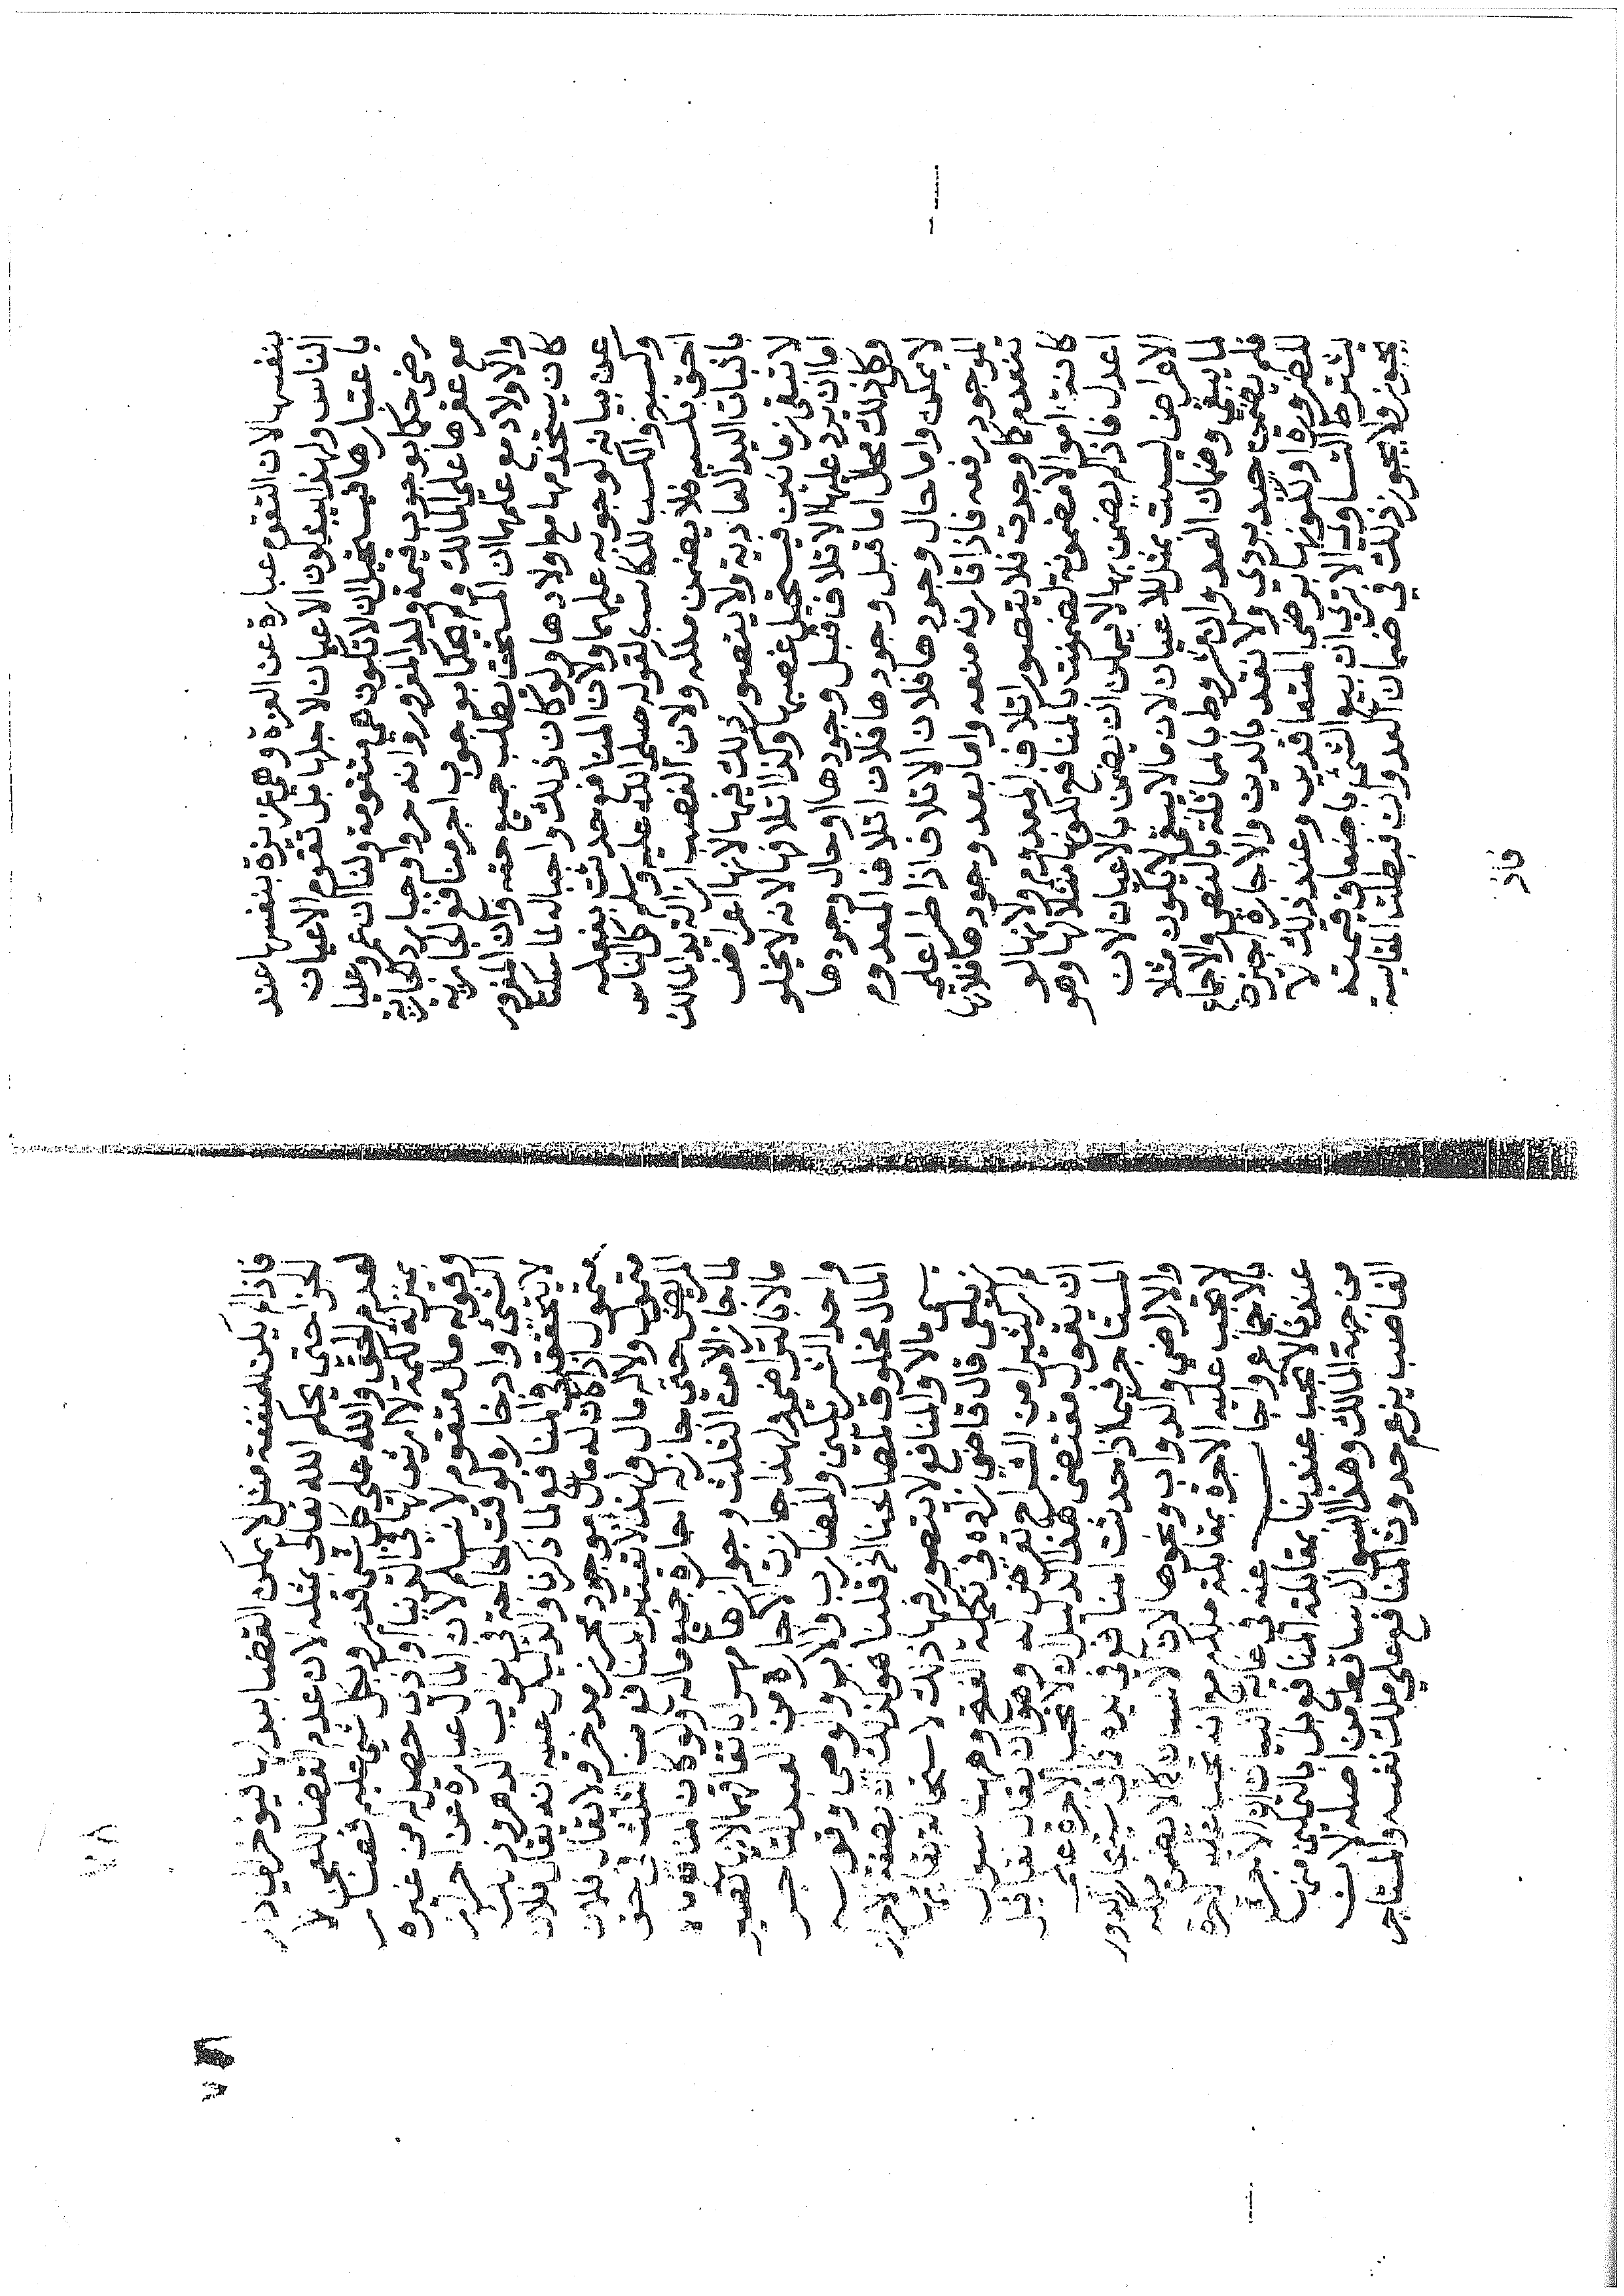 بنفسها لان التقوم عبارة عن العزة وهي عزيزة بنفسها عند
الناس ولهذا يبذلون الاعيان لاجلها بل تقوم الاعيان
باعتبارها فيستحيل ان لا تكون هي متقومة ولنا ان عمر وعليا
رضي حكما بوجوب قيمة ولد المغرور وانه حر واوجبا رد الجارية
مع عقرها علي المالك ولم يحكما بوجوب اجر منافع الجارية
والاولاد مع علمهما ان المستحق يطلب جميع حقه وان المغرور
كان يستخدمها مع اولادها ولو كان ذلك واجبا له لما سكتا
عن بيانه لوجوبه عليهما ولان المنافع حدثت بفعله
وكسبه والكسب للكاسب لقوله صلي الله عليه وسلم كل الناس
احق بكسبه فلا يضمن ملكه ولان الغصب ازالة يد المالك
باثبات اليد العادية ولا يتصور ذلك فيها لانها اعراض
لا تبقي زمانين فيستحيل غصبها وكذا اتلافها لانه لا يخلو
اما ان يرد عليها الاتلاف قبل وجودها او حال وجودها
وكل ذلك محال اما قبل وجودها فلان اتلاف المعدوم
لا يمكن واما حال وجودها فلان الاتلاف اذا طرا علي
الموجود رفعه فاذا قارنه منعه واما بعد وجودها فلانها
تنعدم كما وجدت فلا يتصور اتلاف المعدوم ولانها لو
كانت اموالا مضمونة لضمنت بالمنافع لكونها مثلا لها وهو
اعدل فاذا لم يضمن بها لا يمكن ان يضمن بالاعيان لان
الاعراض ليست بمثل للاعيان لان ما لا يبقي لا يكون مثلا
لما يبقي وضمان العدوان مشروط بالمماثلة بالنص والاجماع
فلم يضمن جيد بردي ولا نقد بالدين والاجارة اجيزت
للضرورة او لكونها برضي المتعاقدين وعند ذلك لا
يشترط التساوي الا تري ان بيع الشي باضعاف قيمته
يجوز ولا يجوز ذلك في ضمان العدوان فبطلت المقايسة
فاذا
فاذا لم يكن للمنفعة مثل لا يمكن القضا بدلها فيوخر الي دار
الجزا حتي يحكم الله تعالي بمثله لان عدم القضا للعجز لا
لعدم الحق والله علي كل شي قدير وبكل شي عليم فصار
بمنزلة كلمة لا ارش لها في الدنيا واذن حصل له من غيره
وقوله مال متقوم لا نسلم لان المال عبارة عن احراز
الشي وادخاره لوقت الحاجة في نوايب الدهر وذلك
لا يتحقق في المنافع لما ذكرنا والدليل عليه انه يقال فلان
متمول اذا كان له مال موجود محرز مدخر ولا يقال فلان
متمول ولا له مال ولهذا لا تعتبر المنافع من الثلث في حق
المريض حتي جاز له اجارة جميع ماله ولو كان المنافع مالا
لما جاز الا من الثلث وجوازها مهرا باتفاقهما لا يا لغير
مالا بالتراضي ولهذا جازت الاجارة من العبد التاجر
واحد الشريكين والمضارب والاب والوصي وقوله
المال مخلوق لمصالحنا قلنا هو كذلك لكن بصفة الاحراز
مالا والمنافع لا تتصور فيها ذلك لاستحالة بقايها
زيلعي قال قاضي زاده في تكملة الفتح وههنا سوال
لم ار كثيرا من الشراح تعرض له وهو ان يقال
ان يقول مقتضي هذا الدليل ان لا تجب الاجرة علي
المستاجر فيما اذا حدثت المنافع في يده كاستيجار الدور
والاراضي والدواب ونحوها لان الانسان لا يضمن ملكه
لا تجب عليه الاجرة بمقابلة ملكه مع انه تجب عليه الاجرة
بالاجماع واجاب عنه في غاية البيان ان الاجرة
عندنا لا تجب عندنا بمقابلة المنافع بل بالتمكين من
من جهة المالك وهذا السوال ساقط من اصله لان
الغاصب يزعم حدوث المنافع علي ملك نفسه والمستاجر
٧٨